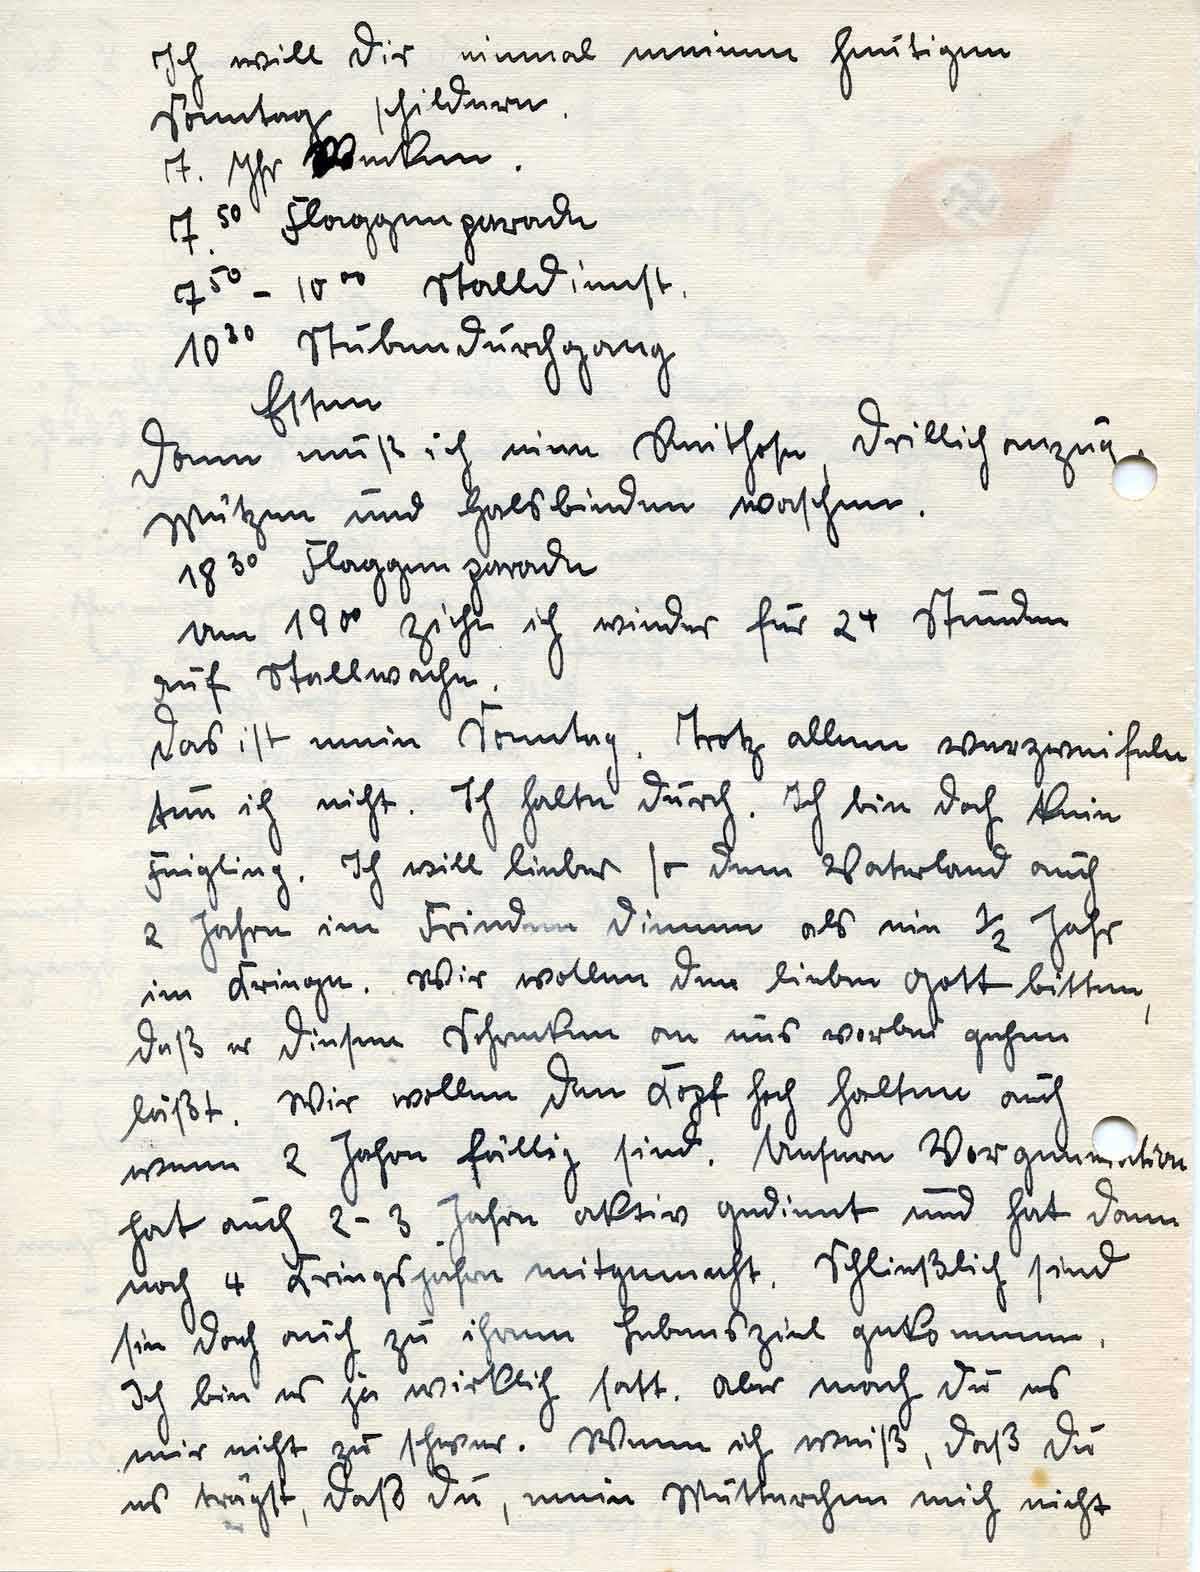 Ich will Dir einmal meinen heutigen
Sonntag schildern.
7. Uhr Wecken.
7.50 Flaggenparade
7 50 - 10 00 Stalldienst.
10 30 Stubendurchgang
Essen
Dann muß ich eine Reithose, Drillichanzug,
Mützen und Halsbinden waschen.
18 30 Flaggenparade
Um 19 00 ziehe ich wieder für 24 Stunden
auf Stallwache.
Das ist mein Sonntag. Trotz allem verzweifeln
tun ich nicht. Ich halte durch. Ich bin doch kein
Feigling. Ich will lieber so dem Vaterland auch
2 Jahre im Frieden dienen als ein 1/2 Jahr
im Kriege. Wir wollen den lieben Gott bitten,
daß er diesen Schrecken an uns vorbei gehen
läßt. Wir wollen den Kopf hoch halten auch
wenn 2 Jahre fällig sind. Unsere Vorgeneration
hat auch 2-3 Jahre aktiv gedient und hat dann
noch 4 Kriegsjahre mitgemacht. Schließlich sind
sie doch auch zu ihrem Lebensziel gekommen.
Ich bin es ja wirklich satt. Aber mach Du es
mir nicht zu schwer. Wenn ich weiß, daß Du
es trägst, daß Du, mein Mütterchen mich nicht